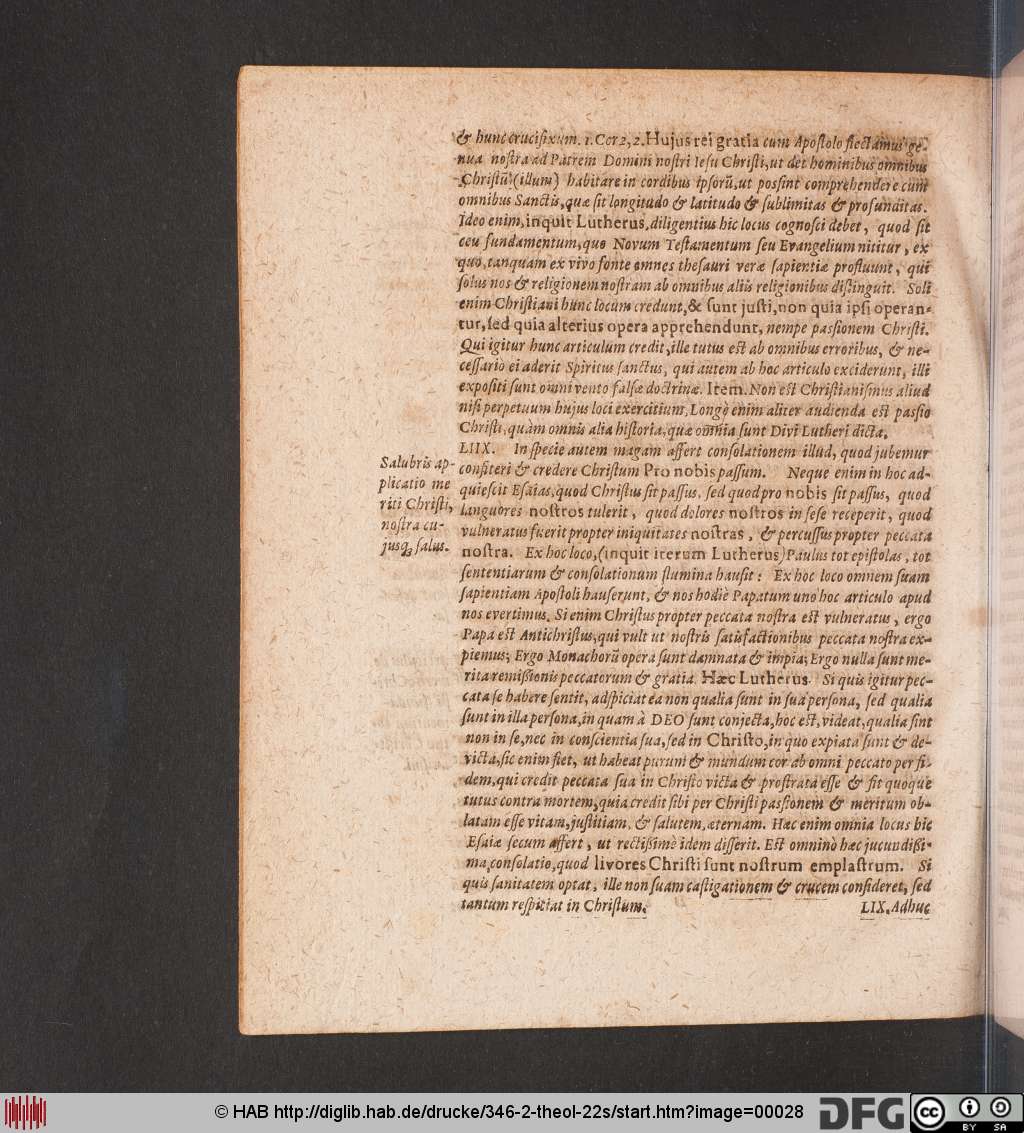 & hunc crucifixum. 1. Cor 2, 2. Hujus rei gratia cum Apoſtolo flectamus ge-
nua noſtra ad Patrem Domini noſtri Ieſu Chriſti, ut det hominibus omnibus
Chriſtũ (illum) habitare in cordibus ipſorũ, ut poſſint comprehendere cum
omnibus Sanctis, quæ ſit longitudo & latitudo & ſublimitas & profunditas.
Ideo enim, inquit Lutherus, diligentius hic locus cognoſci debet, quod ſit
ceu fundamentum, quo Novum Teſtamentum ſeu Evangelium nititur, ex
quo, tanquam ex vivo fonte omnes theſauri veræ ſapientiæ profluunt, qui
ſolus nos & religionem noſtram ab omnibus aliis religionibus diſtinguit. Soli
enim Chriſtiani hunc locum credunt, & ſunt juſti, non quia ipſi operan-
tur, ſed quia alterius opera apprehendunt, nempe paſſionem Chriſti.
Qui igitur hunc articulum credit, ille tutus eſt ab omnibus erroribus, & ne-
ceſſario ei aderit Spiritus ſanctus, qui autem ab hoc articulo exciderunt, illi
expoſiti ſunt omni vento falſæ doctrinæ. Item. Non eſt Chriſtianiſmus aliud
niſi perpetuum hujus loci exercitium, Longè enim aliter audienda eſt paſſio
Chriſti, quàm omnis alia hiſtoria, quæ omnia ſunt Divi Lutheri dicta.
LIIX. In ſpecie autem magam affert conſolationem illud, quod jubemur
confiteri & credere Chriſtum Pro nobis paſſum. Neque enim in hoc ad-
quieſcit Eſaias, quod Chriſtus ſit paſſus, ſed quod pro nobis ſit paſſus, quod
languores noſtros tulerit, quod dolores noſtros in ſeſe receperit, quod
vulneratus fuerit propter iniquitates noſtras, & percuſſus propter peccata
noſtra. Ex hoc loco, (inquit iterum Lutherus) Paulus tot epiſtolas, tot
ſententiarum & conſolationum flumina hauſit: Ex hoc loco omnem ſuam
ſapientiam Apoſtoli hauſerunt, & nos hodiè Papatum uno hoc articulo apud
nos evertimus. Si enim Chriſtus propter peccata noſtra eſt vulneratus, ergo
Papa eſt Antichriſtus, qui vult ut noſtris ſatisfactionibus peccata noſtra ex-
piemus; Ergo Monachorũ opera ſunt damnata & impia; Ergo nulla ſunt me-
rita remiſſionis peccatorum & gratia. Hæc Lutherus. Si quis igitur pec-
cata ſe habere ſentit, adſpiciat ea non qualia ſunt in ſua perſona, ſed qualia
ſunt in illa perſona, in quam à DEO ſunt conjecta, hoc eſt, videat, qualia ſint
non in ſe, nec in conſcientia ſua, ſed in Chriſto, in quo expiata ſunt & de-
victa, ſic enim fiet, ut habeat purum & mundum cor ab omni peccato per fi-
dem, qui credit peccata ſua in Chriſto victa & proſtrata eſſe & fit quoque
tutus contra mortem, quia credit ſibi per Chriſti paſſionem & meritum ob-
latam eſſe vitam, juſtitiam, & ſalutem, æternam. Hæc enim omnia locus hic
Eſaiæ ſecum affert, ut rectiſſimè idem diſſerit. Eſt omninò hæc jucundiſſi-
ma, conſolatio, quod livores Chriſti ſunt noſtrum emplaſtrum. Si
quis ſanitatem optat, ille non ſuam caſtigationem & crucem conſideret, ſed
tantum reſpiciat in Chriſtum.
LIX. Adhuc
Salubris ap-
plicatio me
riti Chriſti,
noſtra cu-
jusq́; ſalus.
© HAB http://diglib.hab.de/drucke/346-2-theol-22s/start.htm?image=00028
DFG
cc
BY SA